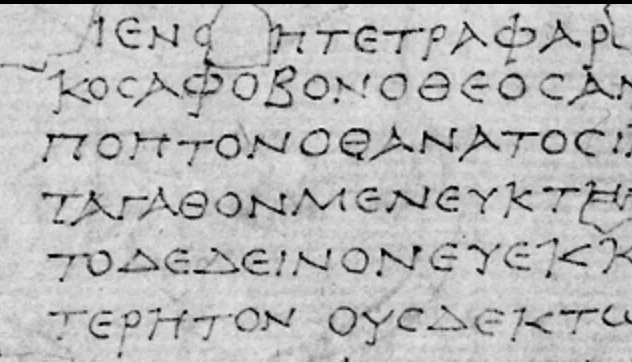 ΙΕΝΟ ΠΤΕΤΡΑΦΑΡ
ΚΟϹΑΦΟΒΟΝΟΘΕΟϹΑΝ
ΠΟΠΤΟΝΟΘΑΝΑΤΟϹ
ΤΑΓΑΘΟΝΜΕΝΕΥΚΤΗ
ΤΟΔΕΔΕΙΝΟΝΕΥΕΚΚ
ΤΕΡΗΤΟΝ ΟΥϹΔΕΚΤΩ